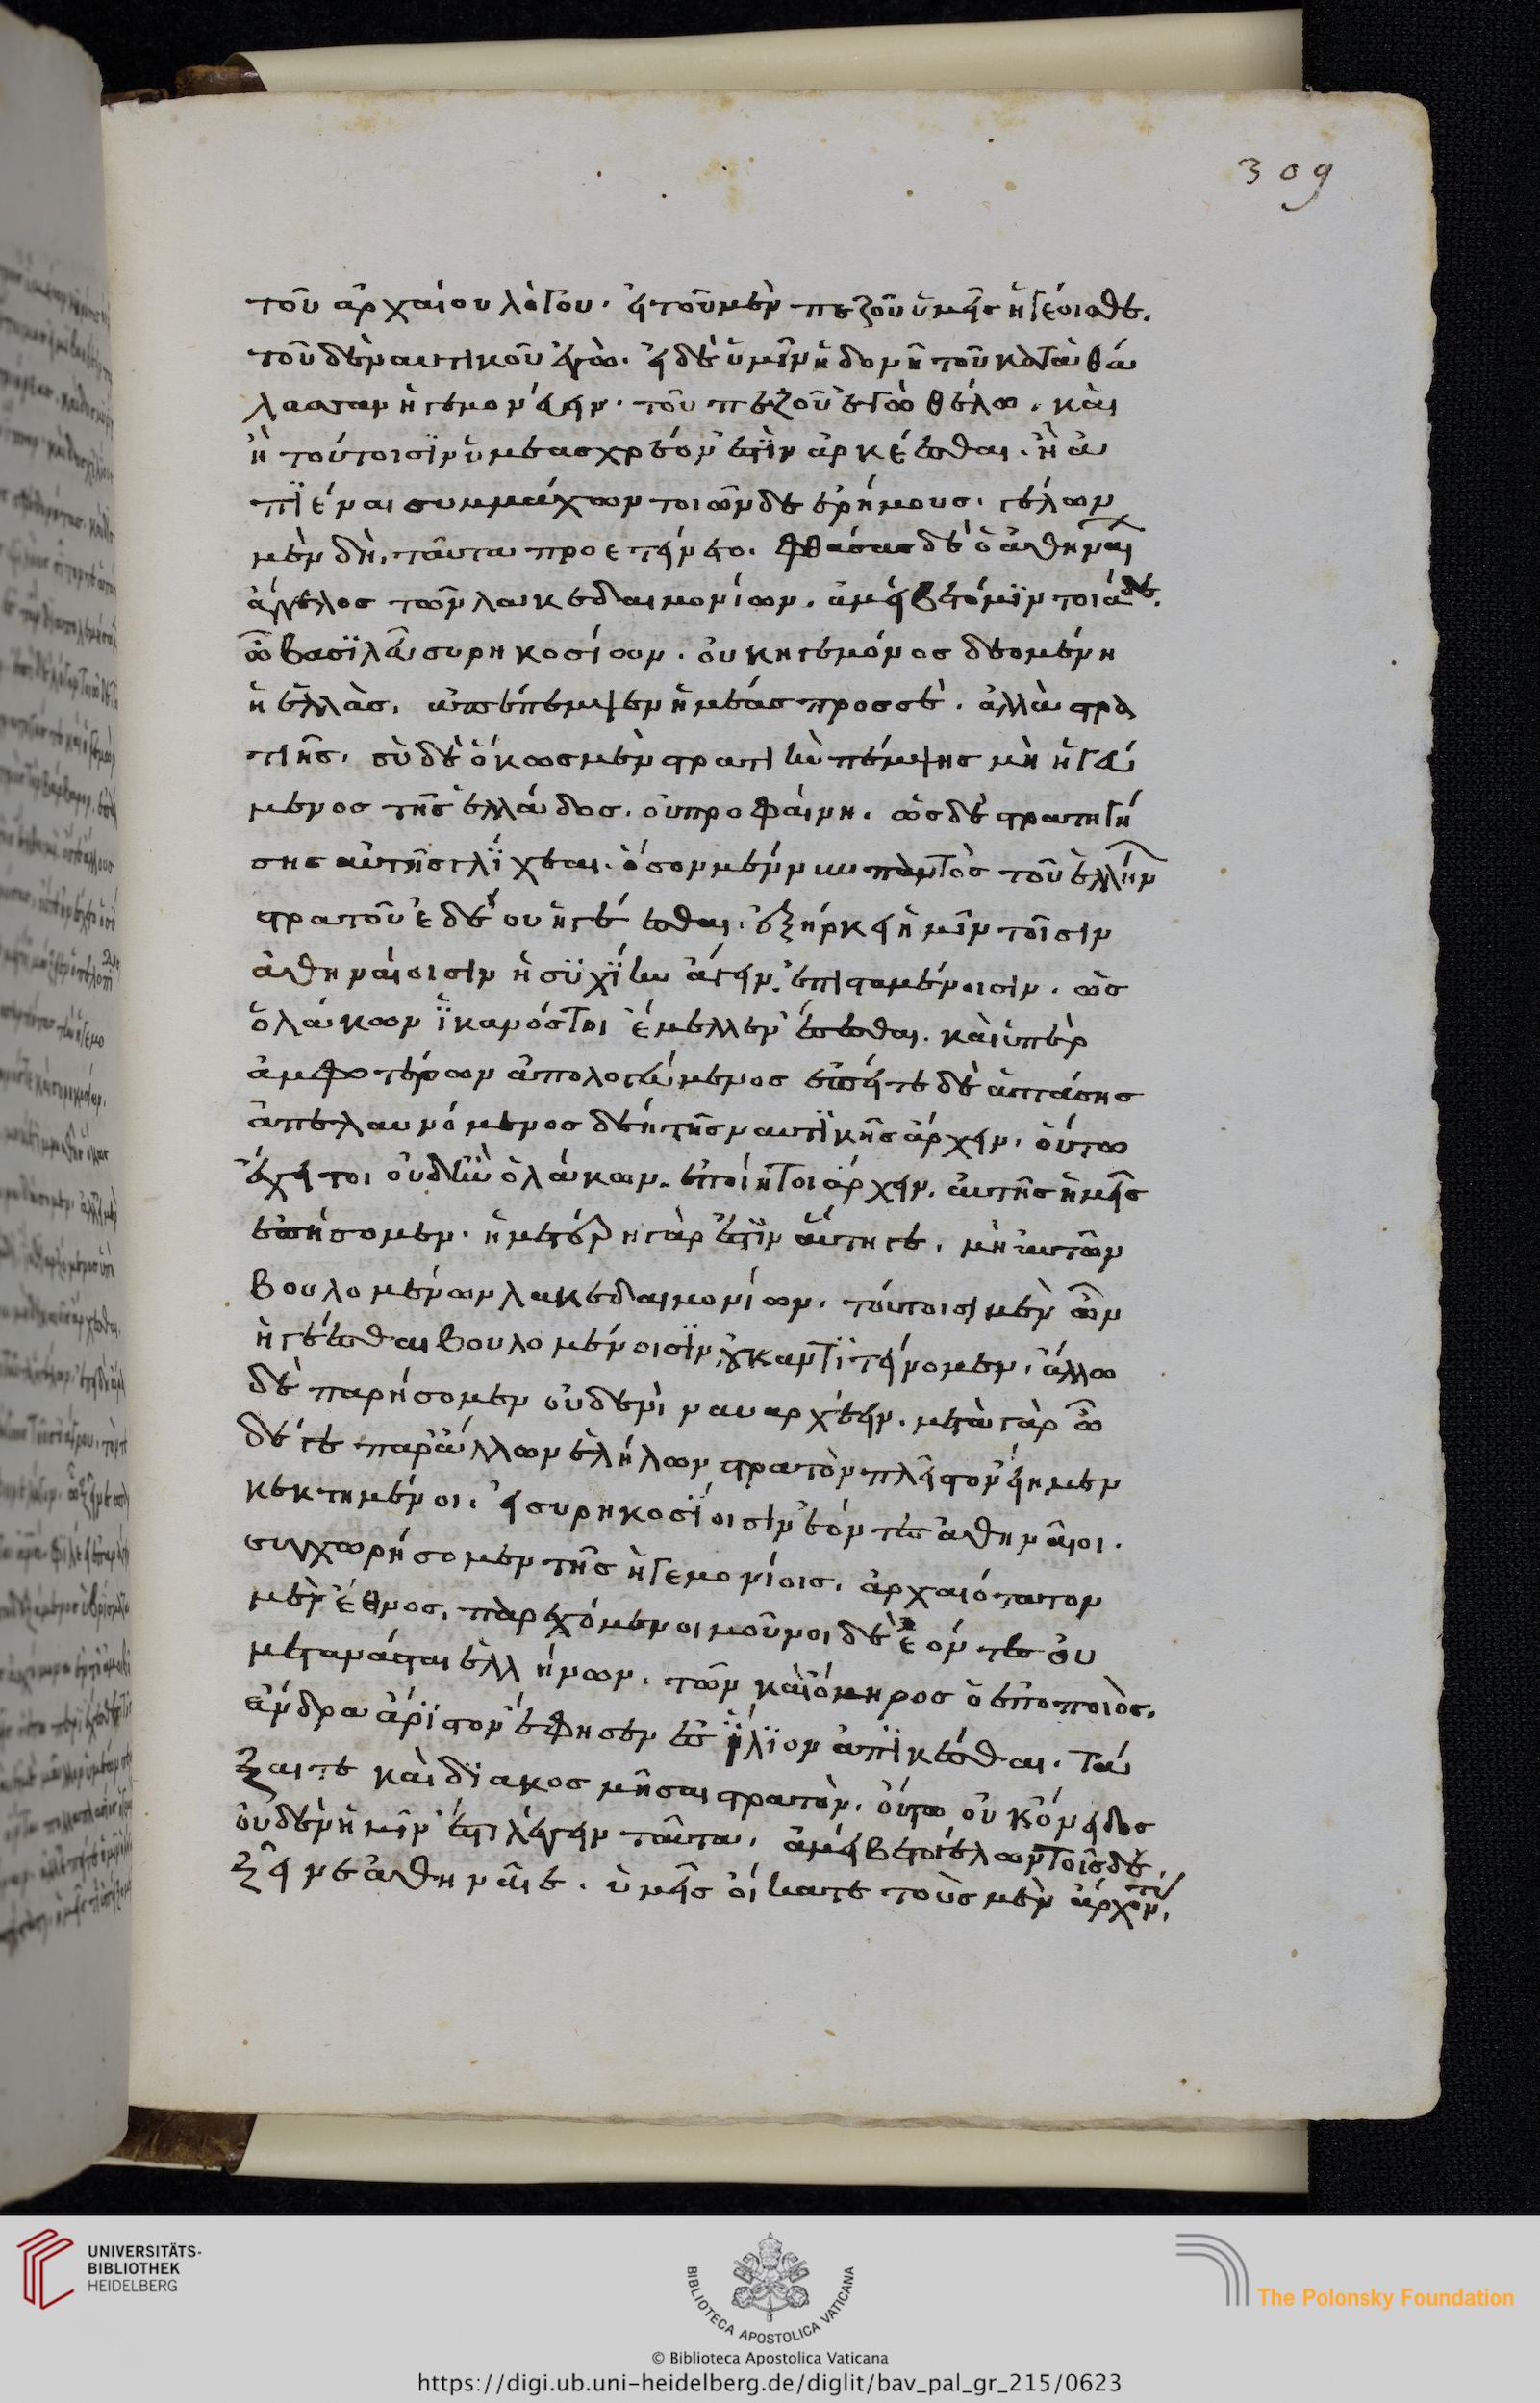 309
τοῦ ἀρχαίου λόγου. εἰ τοῦ μὲν πεζοῦ ὑμεῖς ἡγέοισθε.
τοῦ δὲ ναυτικοῦ ἐγώ. εἰ δὲ ὑμῖν ἡδονὴ τοῦ κατὰ θά
λασσαν ἡγεμονέειν. τοῦ πεζοῦ ἐγὼ θέλω. καὶ
ἢ τούτοισϊν ὑμέας χρεόν ἐστϊν ἀρκέεσθαι. ἢ ἀ
πϊέναι συμμάχων τοιῶνδε ἐρήμους. γέλων
μὲν δὴ, ταῦτα προετείνετο. φθάσας δὲ ὁ ἀθηναί
ἄγγελος τῶν λακεδαιμονίων. ἀμείβετό μϊν τοιάδε.
ὦ βασϊλεῦ συρηκοσίων. οὐκ ἡγεμόνος δεομένη
ἡ ἑλλὰς. ἀπέπεμψεν ἡμέας προς σὲ. ἀλλὰ στρα
τιῆς. σὺ δὲ ὅκως μὲν στρατιὴν πέμψης μὴ ἡγεύ
μενος τῆς ἑλλάδος. οὐ προφαίνη. ὡς δὲ στρατηγή
σης αὐτῆς γλΐχεαι. ὅσον μέν νυν παντὸς τοῦ ἑλλήν
στρατοῦ ἐδέου ἡγέεσθαι. ἐξήρκει ἡμῖν τοῖσιν
ἀθηναίοισιν ἡσϋχΐην ἄγειν. ἐπισταμένοισιν. ὡς
ὁ λάκων ἵκανός τοι ἔμελλεν ἔσεσθαι. καὶ ὑπὲρ
ἀμφοτέρων ἀπολογεύμενος ἐπείτε δὲ ἁπάσης
ἀπελαυνόμενος δέη τῆς ναυτϊκῆς ἄρχειν. οὕτω
ἔχει τοι οὐδ' ἢν ὁ λάκων. ἐποίη τοι ἄρχειν. αὐτῆς ἡμεῖς
ἐπήσομεν. ἡμετέρη γὰρ ἐστϊν αὕτη γε. μὴ αὐτῶν
βουλομένων λακεδαιμονίων. τούτοισι μὲν ὦν
ἡγέεσθαι βουλομένοισϊν, οὐκ ἀντϊτείνομεν. ἄλλω
δὲ παρήσομεν οὐδενὶ ναυαρχέειν. μάτὰν γὰρ ὧ
δέ γε παρ' ἄλλων ἑλήλων στρατὸν πλεῖστον εἴημεν
κεκτημένοι. εἰ συρηκοσΐοισιν ἐόντες ἀθηναῖοι.
συγχωρήσομεν τῆς ἡγεμονίοις. ἀρχαιότατον
μὲν ἔθνος. παρεχόμενοι μοῦνοι δὲ ἐόντες οὐ
μετανάσται ἑλλήνων. τῶν καὶ ὅμηρος ὁ ἐποποιὸς.
ἄνδρα ἄρϊστον ἔφησεν ἐς ἴλϊον ἀπϊκέσθαι. τά
ξαι τε καὶ δϊακοσμῆσαι στρατὸν. οὕτω οὐκ ὄνειδος
οὐδὲν ἡμῖν ἐστι λέγειν ταῦτα. ἀμείβετο γέλων τοῖσδε.
ξεῖνε ἀθηναῖε. ὑμεῖς οἴκατε τοὺς μὲν ἄρχοντας,
UNIVERSITÄTS-
BIBLIOTHEK
HEIDELBERG
BIBLIOTECA APOSTOLICA VATICANA
The Polonsky Foundation
© Biblioteca Apostolica Vaticana
https://digi.ub.uni-heidelberg.de/diglit/bav_pal_gr_215/0623